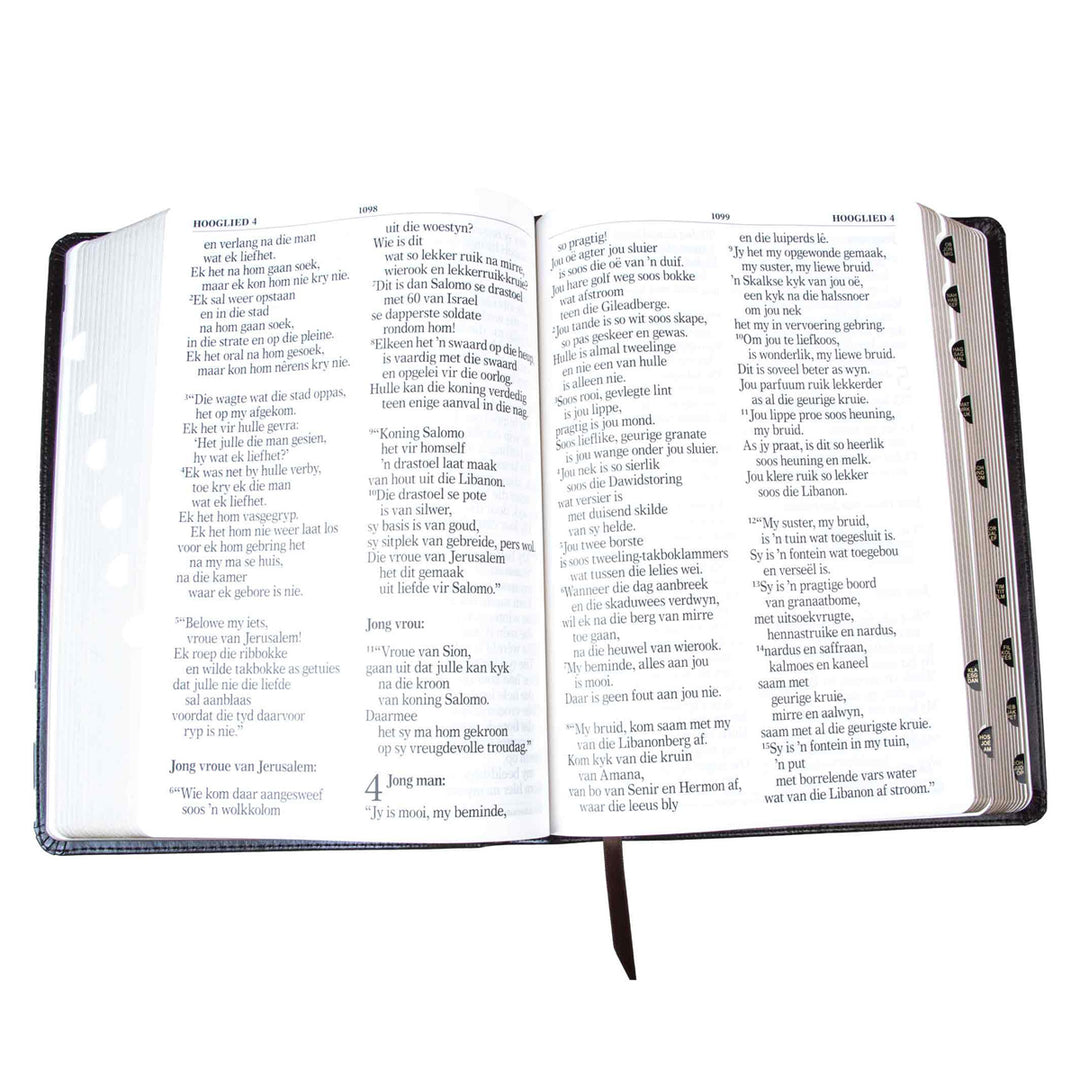 HOOGLIED 4
1098
en verlang na die man
wat ek liefhet.
Ek het na hom gaan soek,
maar ek kon hom nie kry nie.
²Ek sal weer opstaan
en in die stad
na hom gaan soek,
in die strate en op die pleine.
Ek het oral na hom gesoek,
maar kon hom nêrens kry nie.
³“Die wagte wat die stad oppas,
het op my afgekom.
Ek het vir hulle gevra:
‘Het julle die man gesien,
hy wat ek liefhet?’
⁴Ek was net by hulle verby,
toe kry ek die man
wat ek liefhet.
Ek het hom vasgegryp.
Ek het hom nie weer laat los
voor ek hom gebring het
na my ma se huis,
na die kamer
waar ek gebore is nie.
⁵“Belowe my iets,
vroue van Jerusalem!
Ek roep die ribbokke
en wilde takbokke as getuies
dat julle nie die liefde
sal aanblaas
voordat die tyd daarvoor
ryp is nie.”
Jong vroue van Jerusalem:
⁶“Wie kom daar aangesweef
soos ’n wolkkolom
uit die woestyn?
Wie is dit
wat so lekker ruik na mirre,
wierook en lekkerruik-kruie?
⁷Dit is dan Salomo se drastoel
met 60 van Israel
se dapperste soldate
rondom hom!
⁸Elkeen het ’n swaard op die heup,
is vaardig met die swaard
en opgelei vir die oorlog.
Hulle kan die koning verdedig
teen enige aanval in die nag.
⁹“Koning Salomo
het vir homself
’n drastoel laat maak
van hout uit die Libanon.
¹⁰Die drastoel se pote
is van silwer,
sy basis is van goud,
sy sitplek van gebreide, pers wol.
Die vroue van Jerusalem
het dit gemaak
uit liefde vir Salomo.”
Jong vrou:
¹¹“Vroue van Sion,
gaan uit dat julle kan kyk
na die kroon
van koning Salomo.
Daarmee
het sy ma hom gekroon
op sy vreugdevolle troudag.”
4 Jong man:
“Jy is mooi, my beminde,
1099
HOOGLIED 4
so pragtig!
Jou oë agter jou sluier
is soos die oë van ’n duif.
Jou hare golf weg soos bokke
wat afstroom
teen die Gileadberge.
²Jou tande is so wit soos skape,
so pas geskeer en gewas.
Hulle is almal tweelinge
en nie een van hulle
is alleen nie.
³Soos rooi, gevlegte lint
is jou lippe,
pragtig is jou mond.
Soos lieflike, geurige granate
is jou wange onder jou sluier.
⁴Jou nek is so sierlik
soos die Dawidstoring
wat versier is
met duisend skilde
van sy helde.
⁵Jou twee borste
is soos tweeling-takboklammers
wat tussen die lelies wei.
⁶Wanneer die dag aanbreek
en die skaduwees verdwyn,
wil ek na die berg van mirre
toe gaan,
na die heuwel van wierook.
⁷My beminde, alles aan jou
is mooi.
Daar is geen fout aan jou nie.
⁸“My bruid, kom saam met my
van die Libanonberg af.
Kom kyk van die kruin
van Amana,
van bo van Senir en Hermon af,
waar die leeus bly
en die luiperds lê.
⁹Jy het my opgewonde gemaak,
my suster, my liewe bruid.
’n Skalkse kyk van jou oë,
een kyk na die halssnoer
om jou nek
het my in vervoering gebring.
¹⁰Om jou te liefkoos,
is wonderlik, my liewe bruid.
Dit is soveel beter as wyn.
Jou parfuum ruik lekkerder
as al die geurige kruie.
¹¹Jou lippe proe soos heuning,
my bruid.
As jy praat, is dit so heerlik
soos heuning en melk.
Jou klere ruik so lekker
soos die Libanon.
¹²“My suster, my bruid,
is ’n tuin wat toegesluit is.
Sy is ’n fontein wat toegebou
en verseël is.
¹³Sy is ’n pragtige boord
van granaatbome,
met uitsoekvrugte,
hennastruike en nardus,
¹⁴nardus en saffraan,
kalmoes en kaneel
saam met
geurige kruie,
mirre en aalwyn,
saam met al die geurigste kruie.
¹⁵Sy is ’n fontein in my tuin,
’n put
met borrelende vars water
wat van die Libanon af stroom.”
HAG
SAG
MAL
MAT
MRK
LUK
KLA
ESG
DAN
HOS
JOË
AM